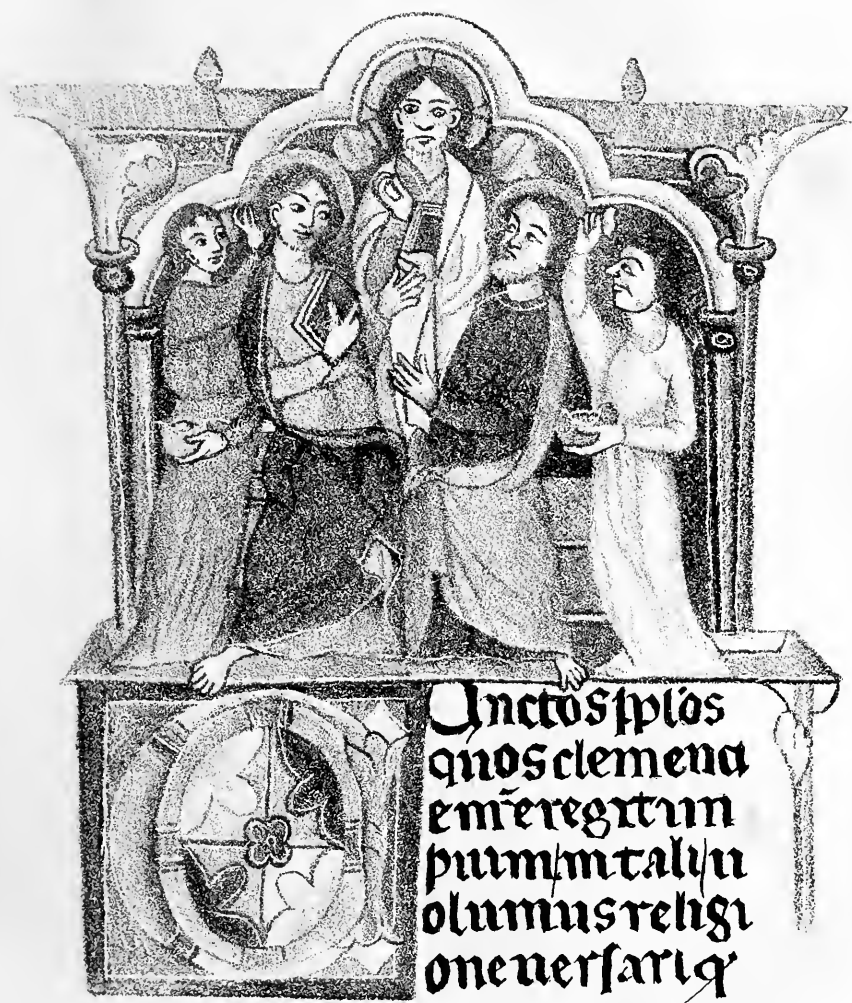 CUnctos pplos
quos clementi
e nr̄e regit im
pium in tali u
olumus religi
one uersari q̄